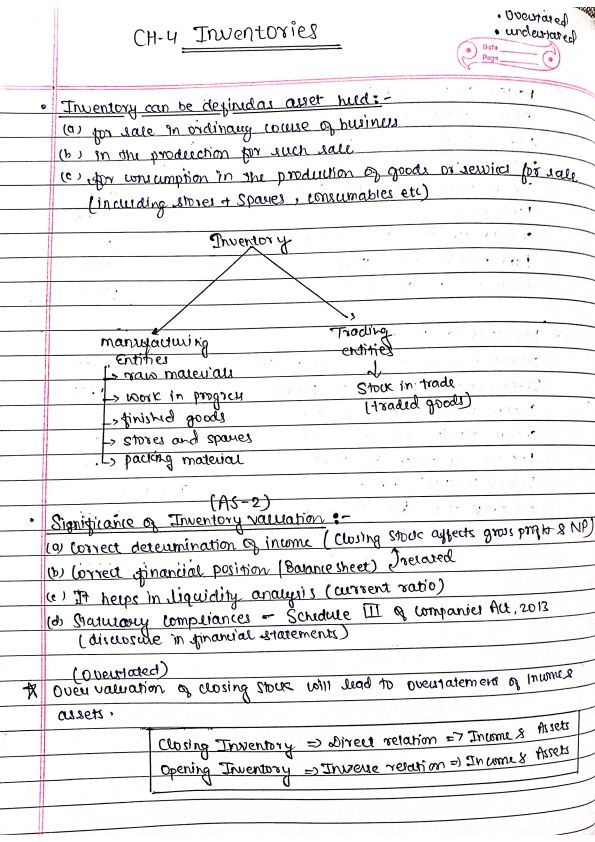 • Overstated
• understated
CH-4 Inventories
Date
Page
• Inventory can be defined as asset held:-
(a) for sale in ordinary course of business
(b) in the production for such sale
(c) for consumption in the production of goods or services for sale
(including stores + spares, consumables etc)
Inventory
manufacturing
Entities
→ raw materials
→ work in progress
→ finished goods
→ stores and spares
→ packing material
Trading
entities
↓
Stock in trade
(traded goods)
(AS-2)
• Significance of Inventory valuation :-
(a) Correct determination of income (closing stock affects gross profit & NP)
(b) Correct financial position (Balance sheet) ↑ related
(c) It helps in liquidity analysis (current ratio)
(d) Statutory compliances - Schedule III of Companies Act, 2013
(disclosure in financial statements)
(overstated)
☆ Over valuation of closing stock will lead to overstatement of Income &
assets.
Closing Inventory ⇒ Direct relation ⇒ Income & Assets
Opening Inventory ⇒ Inverse relation ⇒ Income & Assets